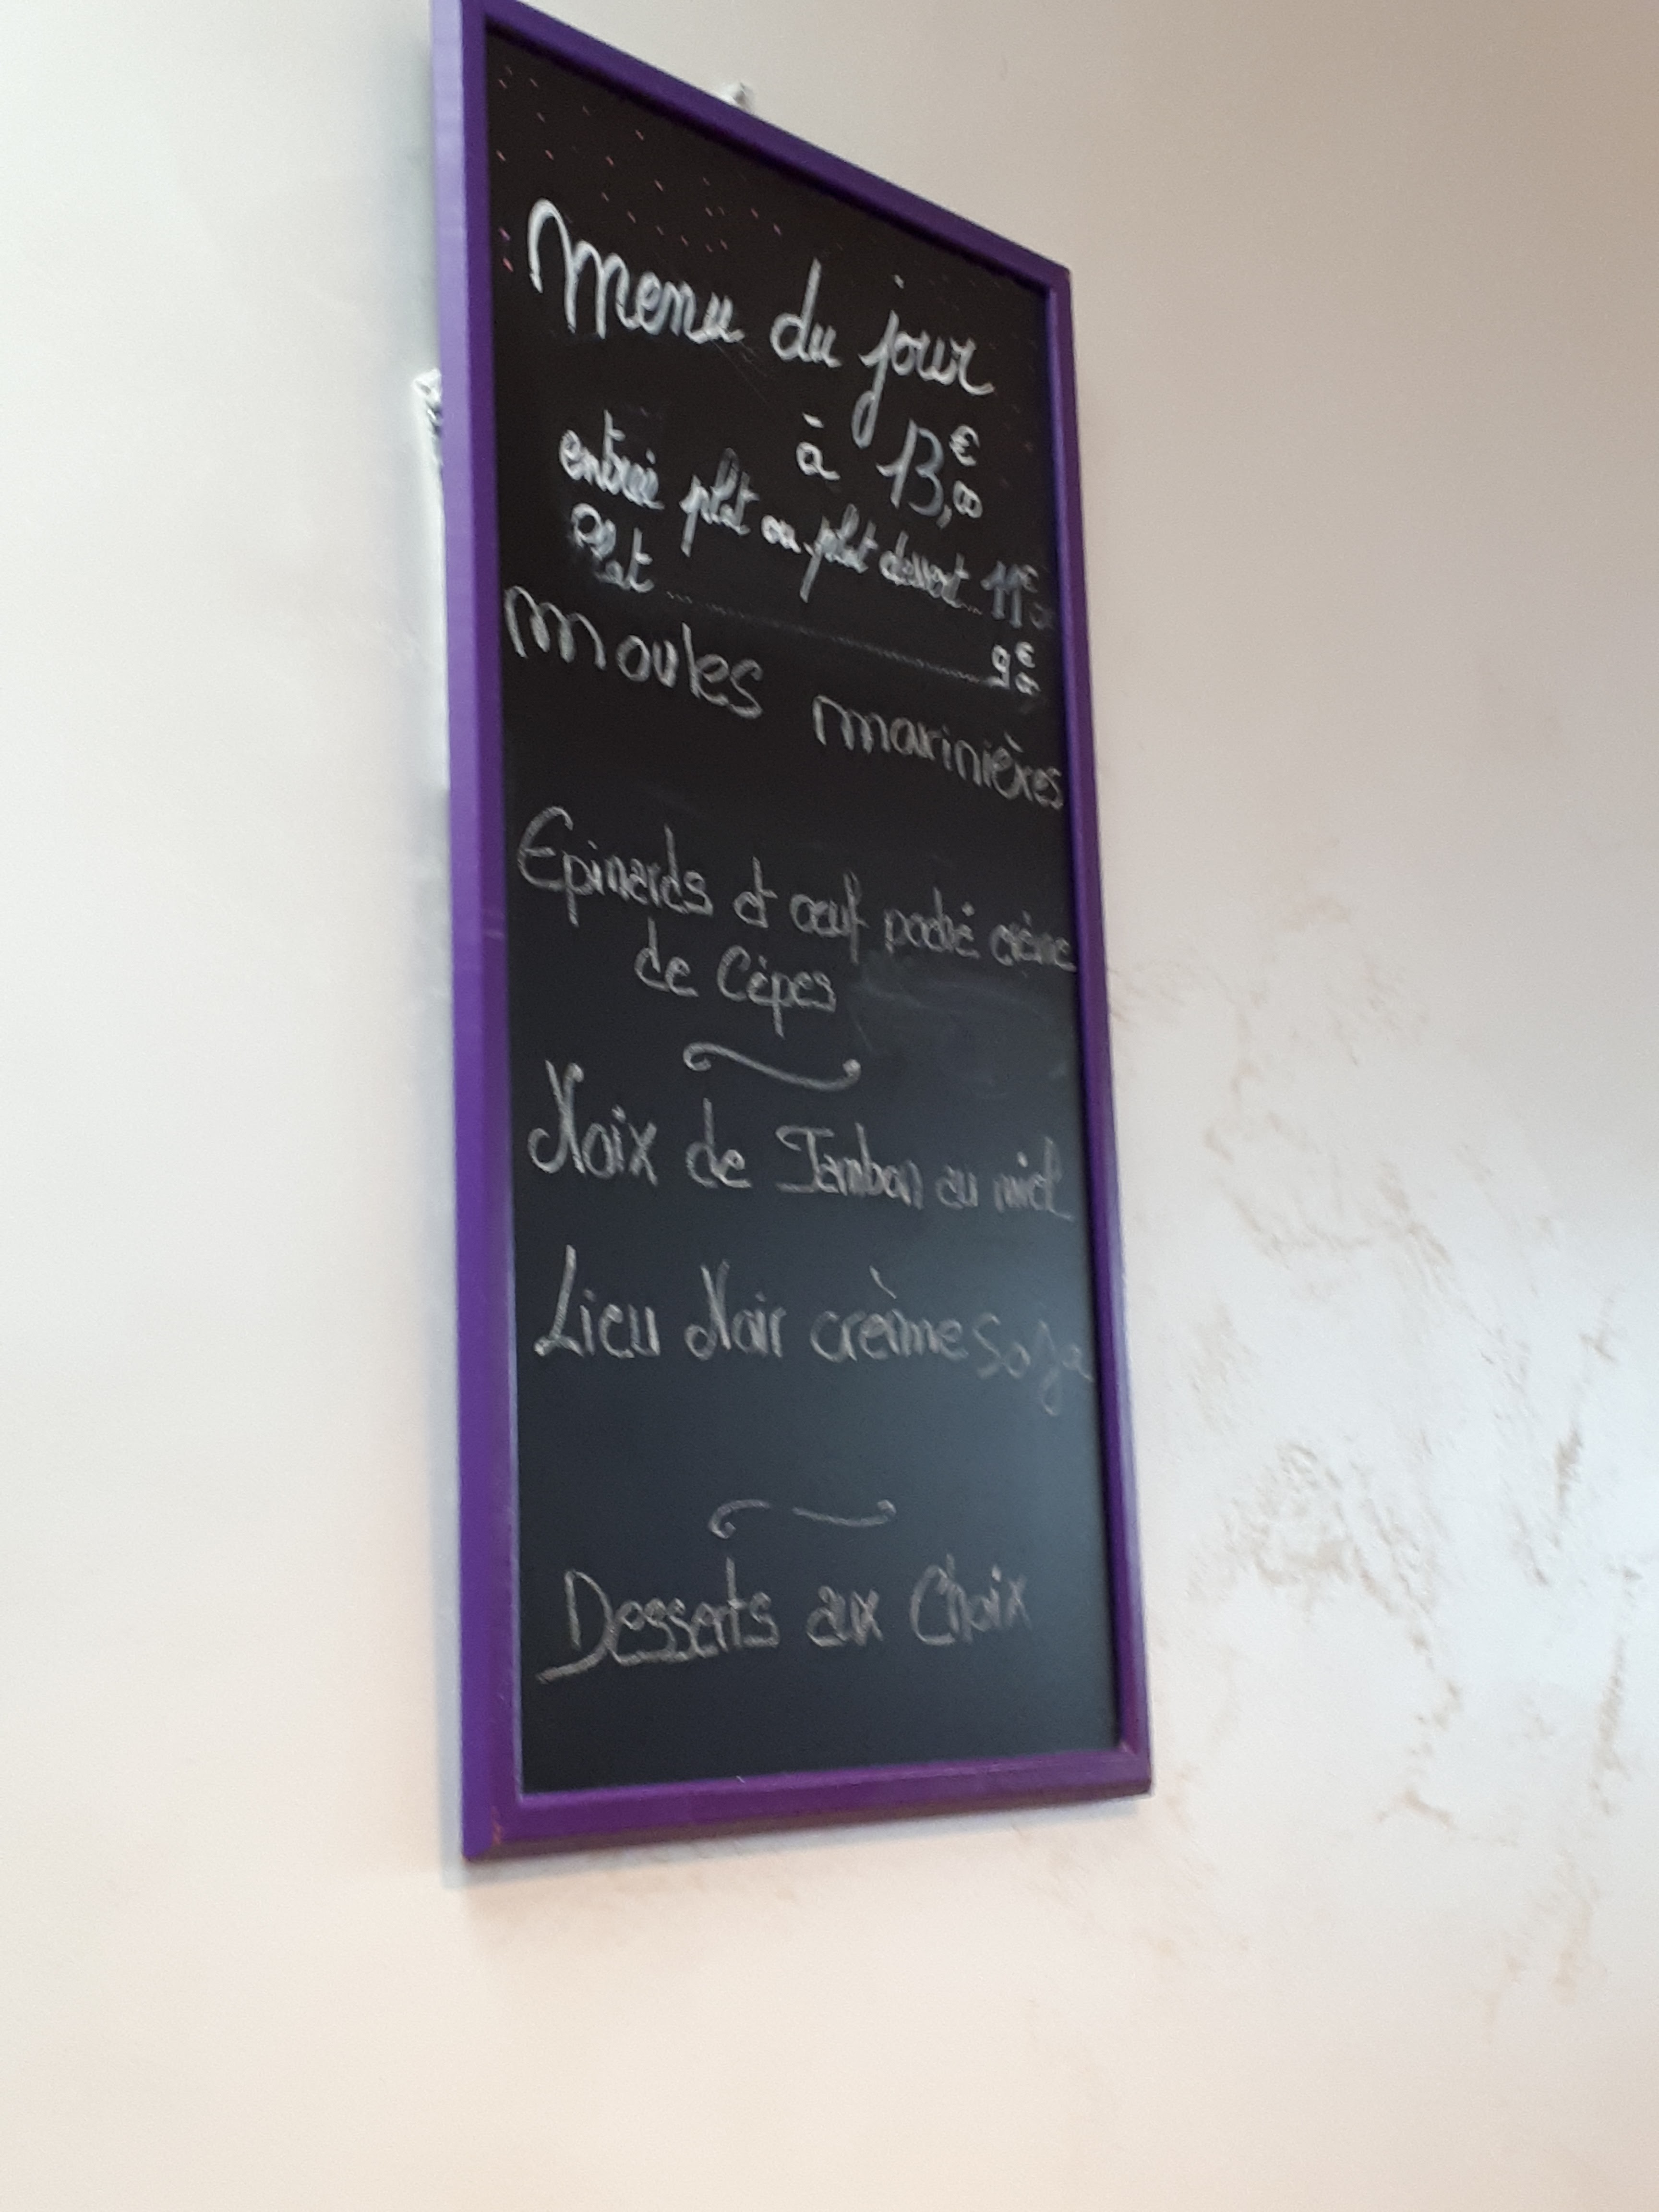 Menu du jour
à 13,00€
entrée plat ou plat dessert... 11€00
Plat ........................ 9€00
Moules marinières
Epinards et œuf poché crème
de Cèpes
Noix de Jambon au miel
Lieu Noir crème Soja
Desserts aux Choix